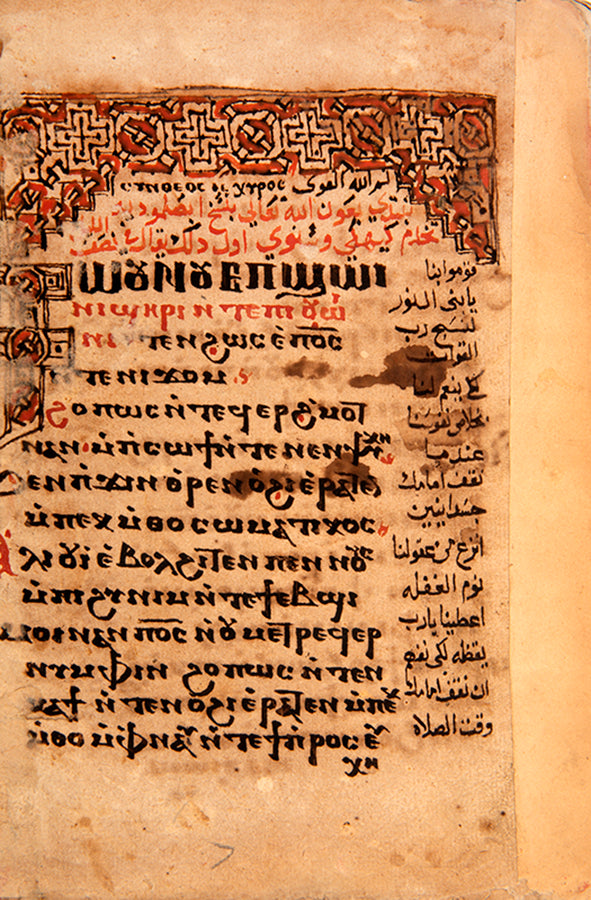 ⲥⲩⲛⲑⲉⲟⲥ ⲓⲥⲭⲩⲣⲟⲥ بسم الله القوي
نبتدي بعون الله تعالى بنسخ ابصلموديه
تخدم كيهكي وسنوي اول ذلك يقال
ⲱⲟⲩⲛⲟⲩ ⲉⲡϣⲱⲓ
ⲛⲓϣⲏⲣⲓ ⲛ̀ⲧⲉ ⲡⲓⲟⲩⲱ̀
ⲛⲓ ⲛ̀ⲧⲉⲛϩⲱⲥ ⲉ̀ⲡⲟ̅ⲥ̅
ⲛ̀ⲧⲉ ⲛⲓϫⲟⲙ
ϩⲟⲡⲱⲥ ⲛ̀ⲧⲉϥⲉⲣϩ̀ⲙⲟⲧ
ⲛⲁⲛ ⲙ̀ⲡ̀ⲥⲱϯ ⲛ̀ⲧⲉ ⲛⲉⲛⲯⲭⲏ
ϧⲉⲛ ⲡ̀ϫⲓⲛⲟⲣⲉⲛⲟϩⲓ ⲉ̀ⲣⲁⲧⲉⲛ
ⲙ̀ⲡⲉⲕⲙ̀ⲑⲟ ⲥⲱⲙⲁⲧⲓⲕⲟⲥ
ⲁⲗⲓⲟⲩⲓ̀ ⲉ̀ⲃⲟⲗϩⲓⲧⲉⲛ ⲡⲉⲛⲛⲟⲩⲥ
ⲙ̀ⲡⲓϩⲩⲛⲓⲙ ⲛ̀ⲧⲉ ϯⲉⲃϣⲓ
ⲙⲟⲓ ⲛⲁⲛ ⲡⲟ̅ⲥ̅ ⲛ̀ⲟⲩⲙⲉⲧⲣⲉϥⲉⲣ
ⲛⲩⲙⲫⲓⲛ ϩⲟⲡⲱⲥ ⲛ̀ⲧⲉⲛ
ⲕⲁϯ ⲛ̀ⲧⲉⲛⲟϩⲓ ⲉ̀ⲣⲁⲧⲉⲛ ⲙ̀ⲡⲉⲕ
ⲙ̀ⲑⲟ ⲙ̀ⲫⲛⲁⲩ ⲛ̀ⲧⲉ ϯⲡ̀ⲣⲟⲥⲉⲩ
ⲭⲏ
قوموا بنا
يا بني النور
لنسبح رب
القوات
كي ينعم لنا
بخلاص نفوسنا
عندما
نقف امامك
جسدانيين
انزع من عقولنا
نوم الغفله
اعطينا يارب
يقظه لكي نفهم
ان نقف امامك
وقت الصلاه